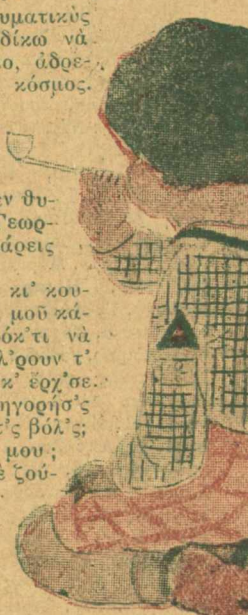 υματικὺς
δίκω νὰ
ο, ἀδρε-
κόσμος.
ν θυ-
Γεωρ-
άρεις
κι' κου-
μοῦ κά-
όκ'τι νὰ
λ'ρουν τ'
κ' ἔρχ'σε.
ηγορήσ'ς
τ'ς βόλ'ς;
μου;
ὲ ζού-